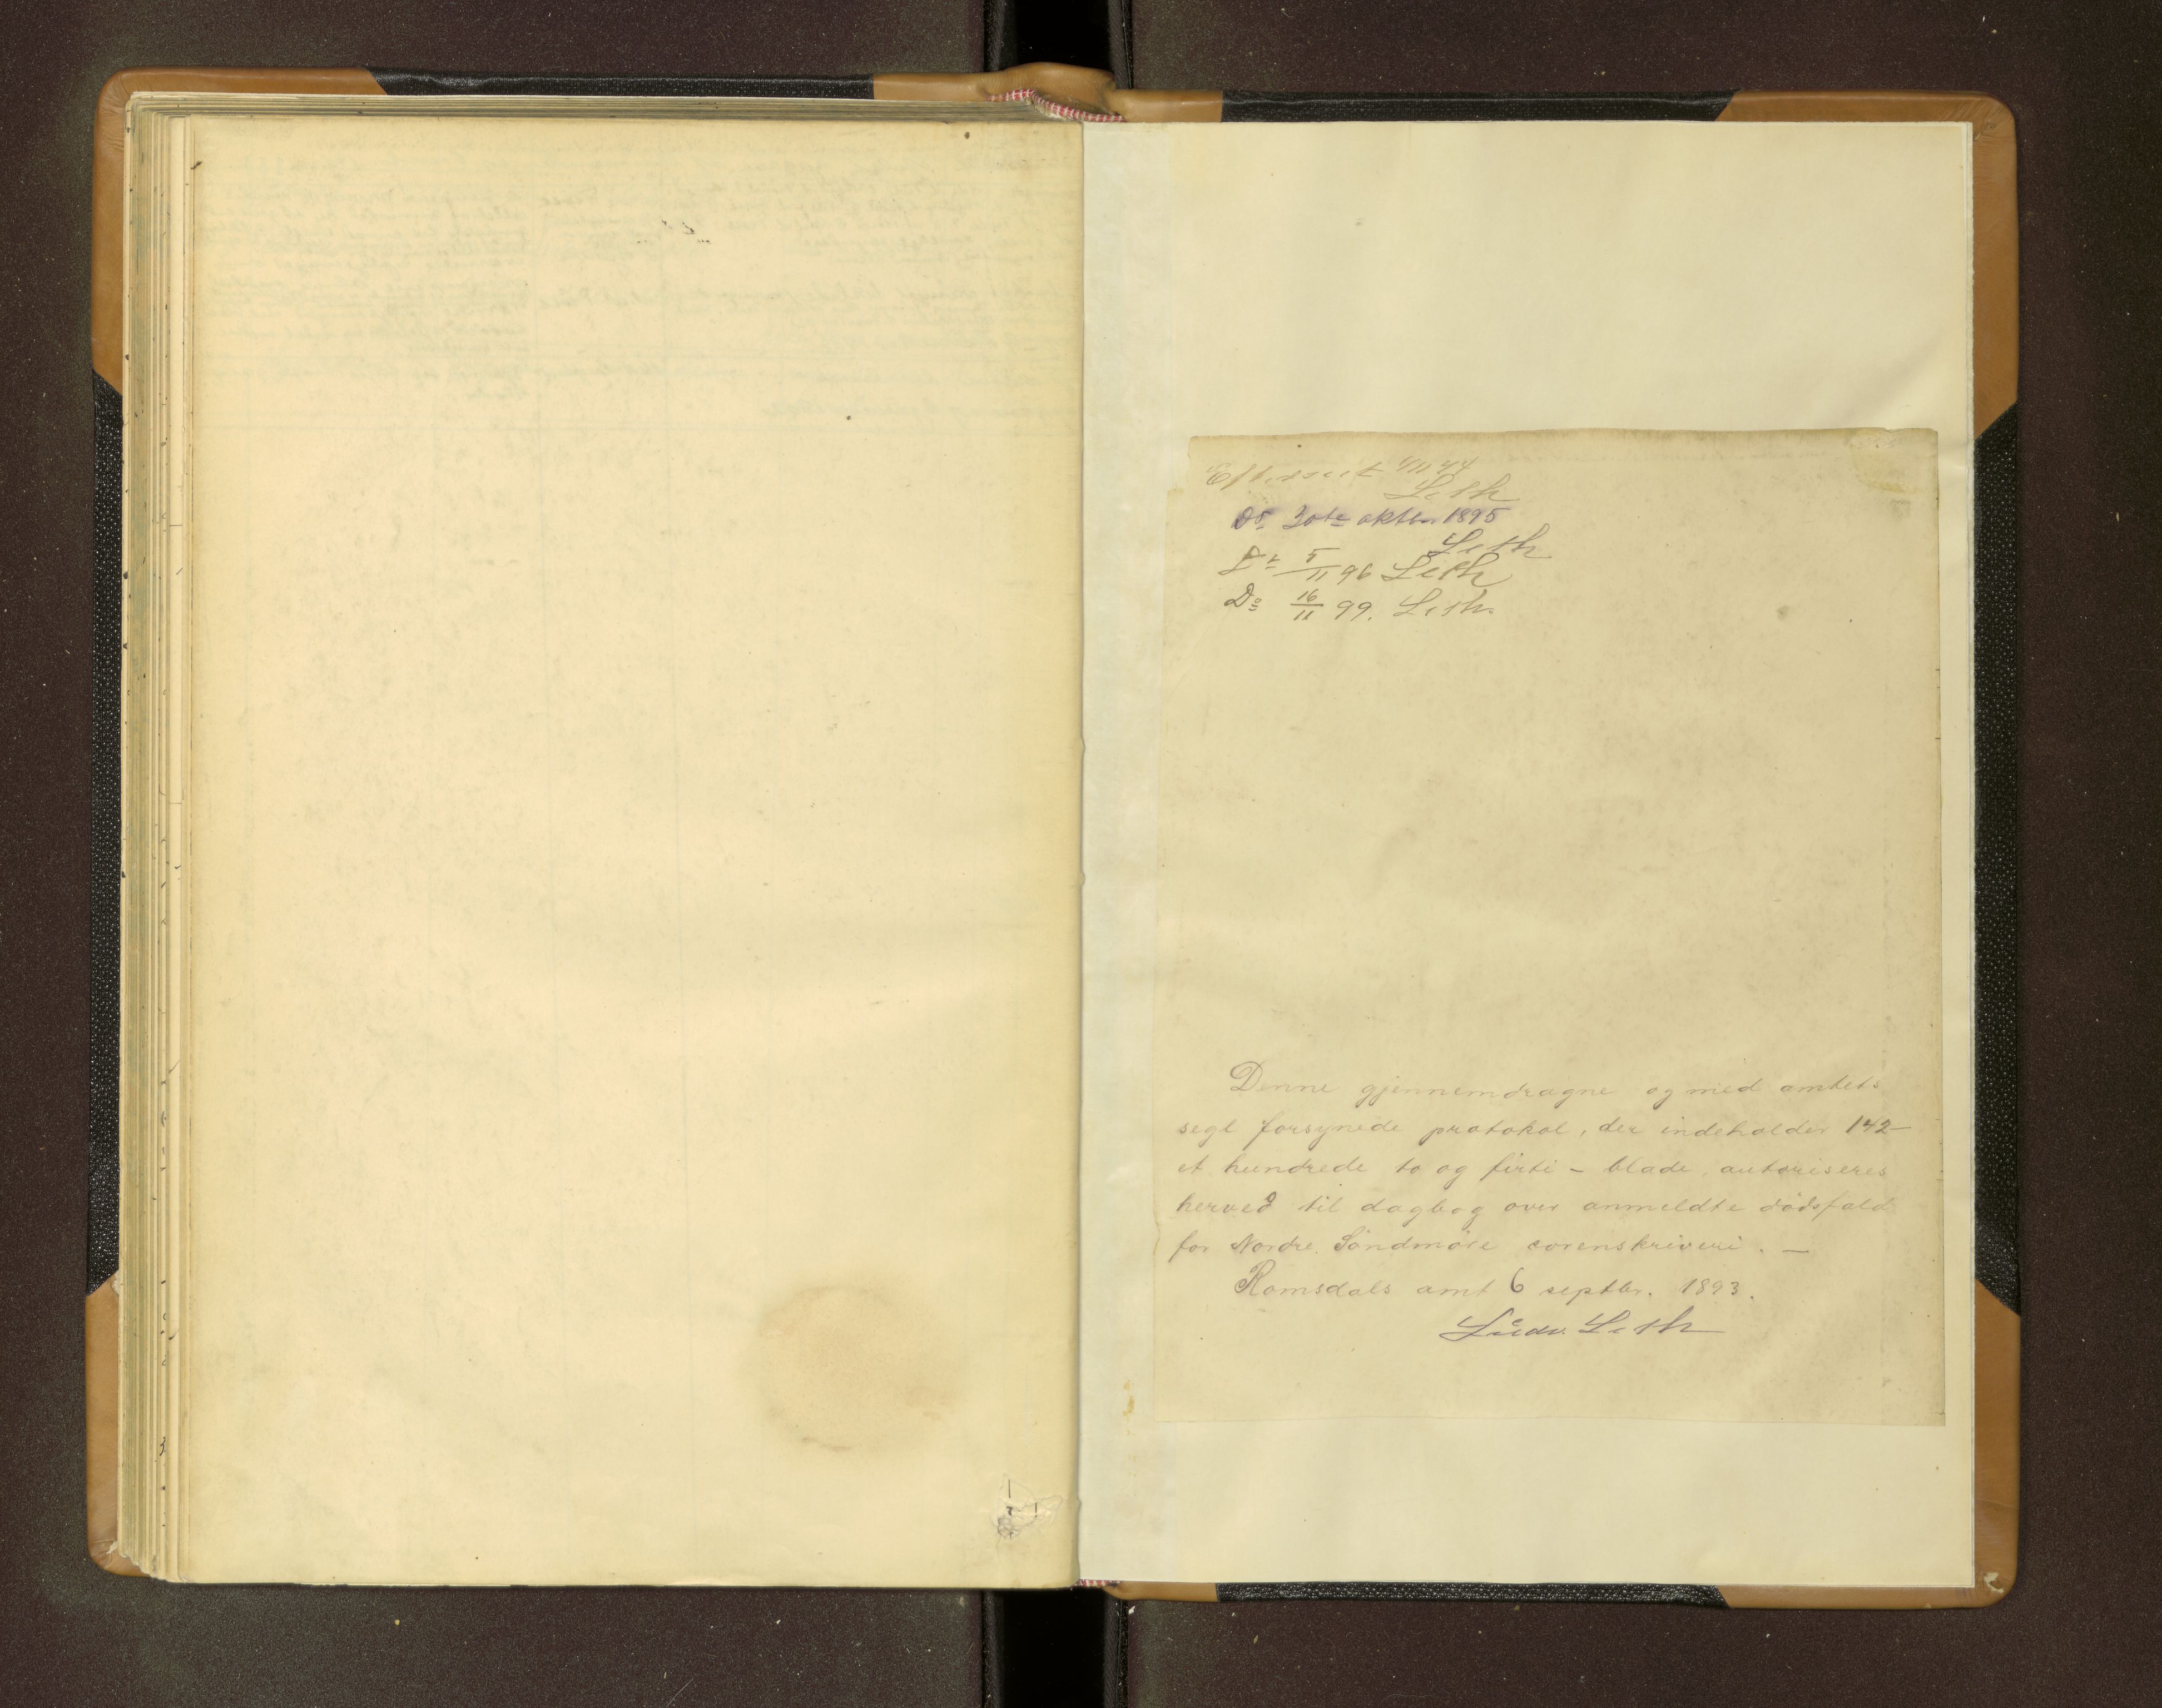 Efterseet
Leth
Do 30te oktbr 1895
Leth
Do 5/11 96 Leth
Do 16/11 99. Leth.
Denne gjennemdragne og med amtets
segl forsynede protokol, der indeholder 142 -
et hundrede to og firti - blade, autoriseres
herved til dagbog over anmeldte dødsfald
for Nordre Søndmøre sorenskriveri. -
Romsdals amt 6 septbr. 1893.
Leth